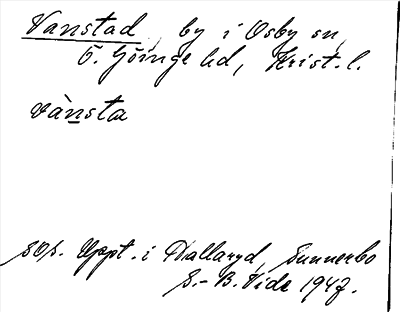 Vanstad, by i Osby sn,
Ö. Göinge hd, Krist. l.
vànsta
sOs. Uppt. i Hallaryd, Sunnerbo
S.-B. Vide 1947.